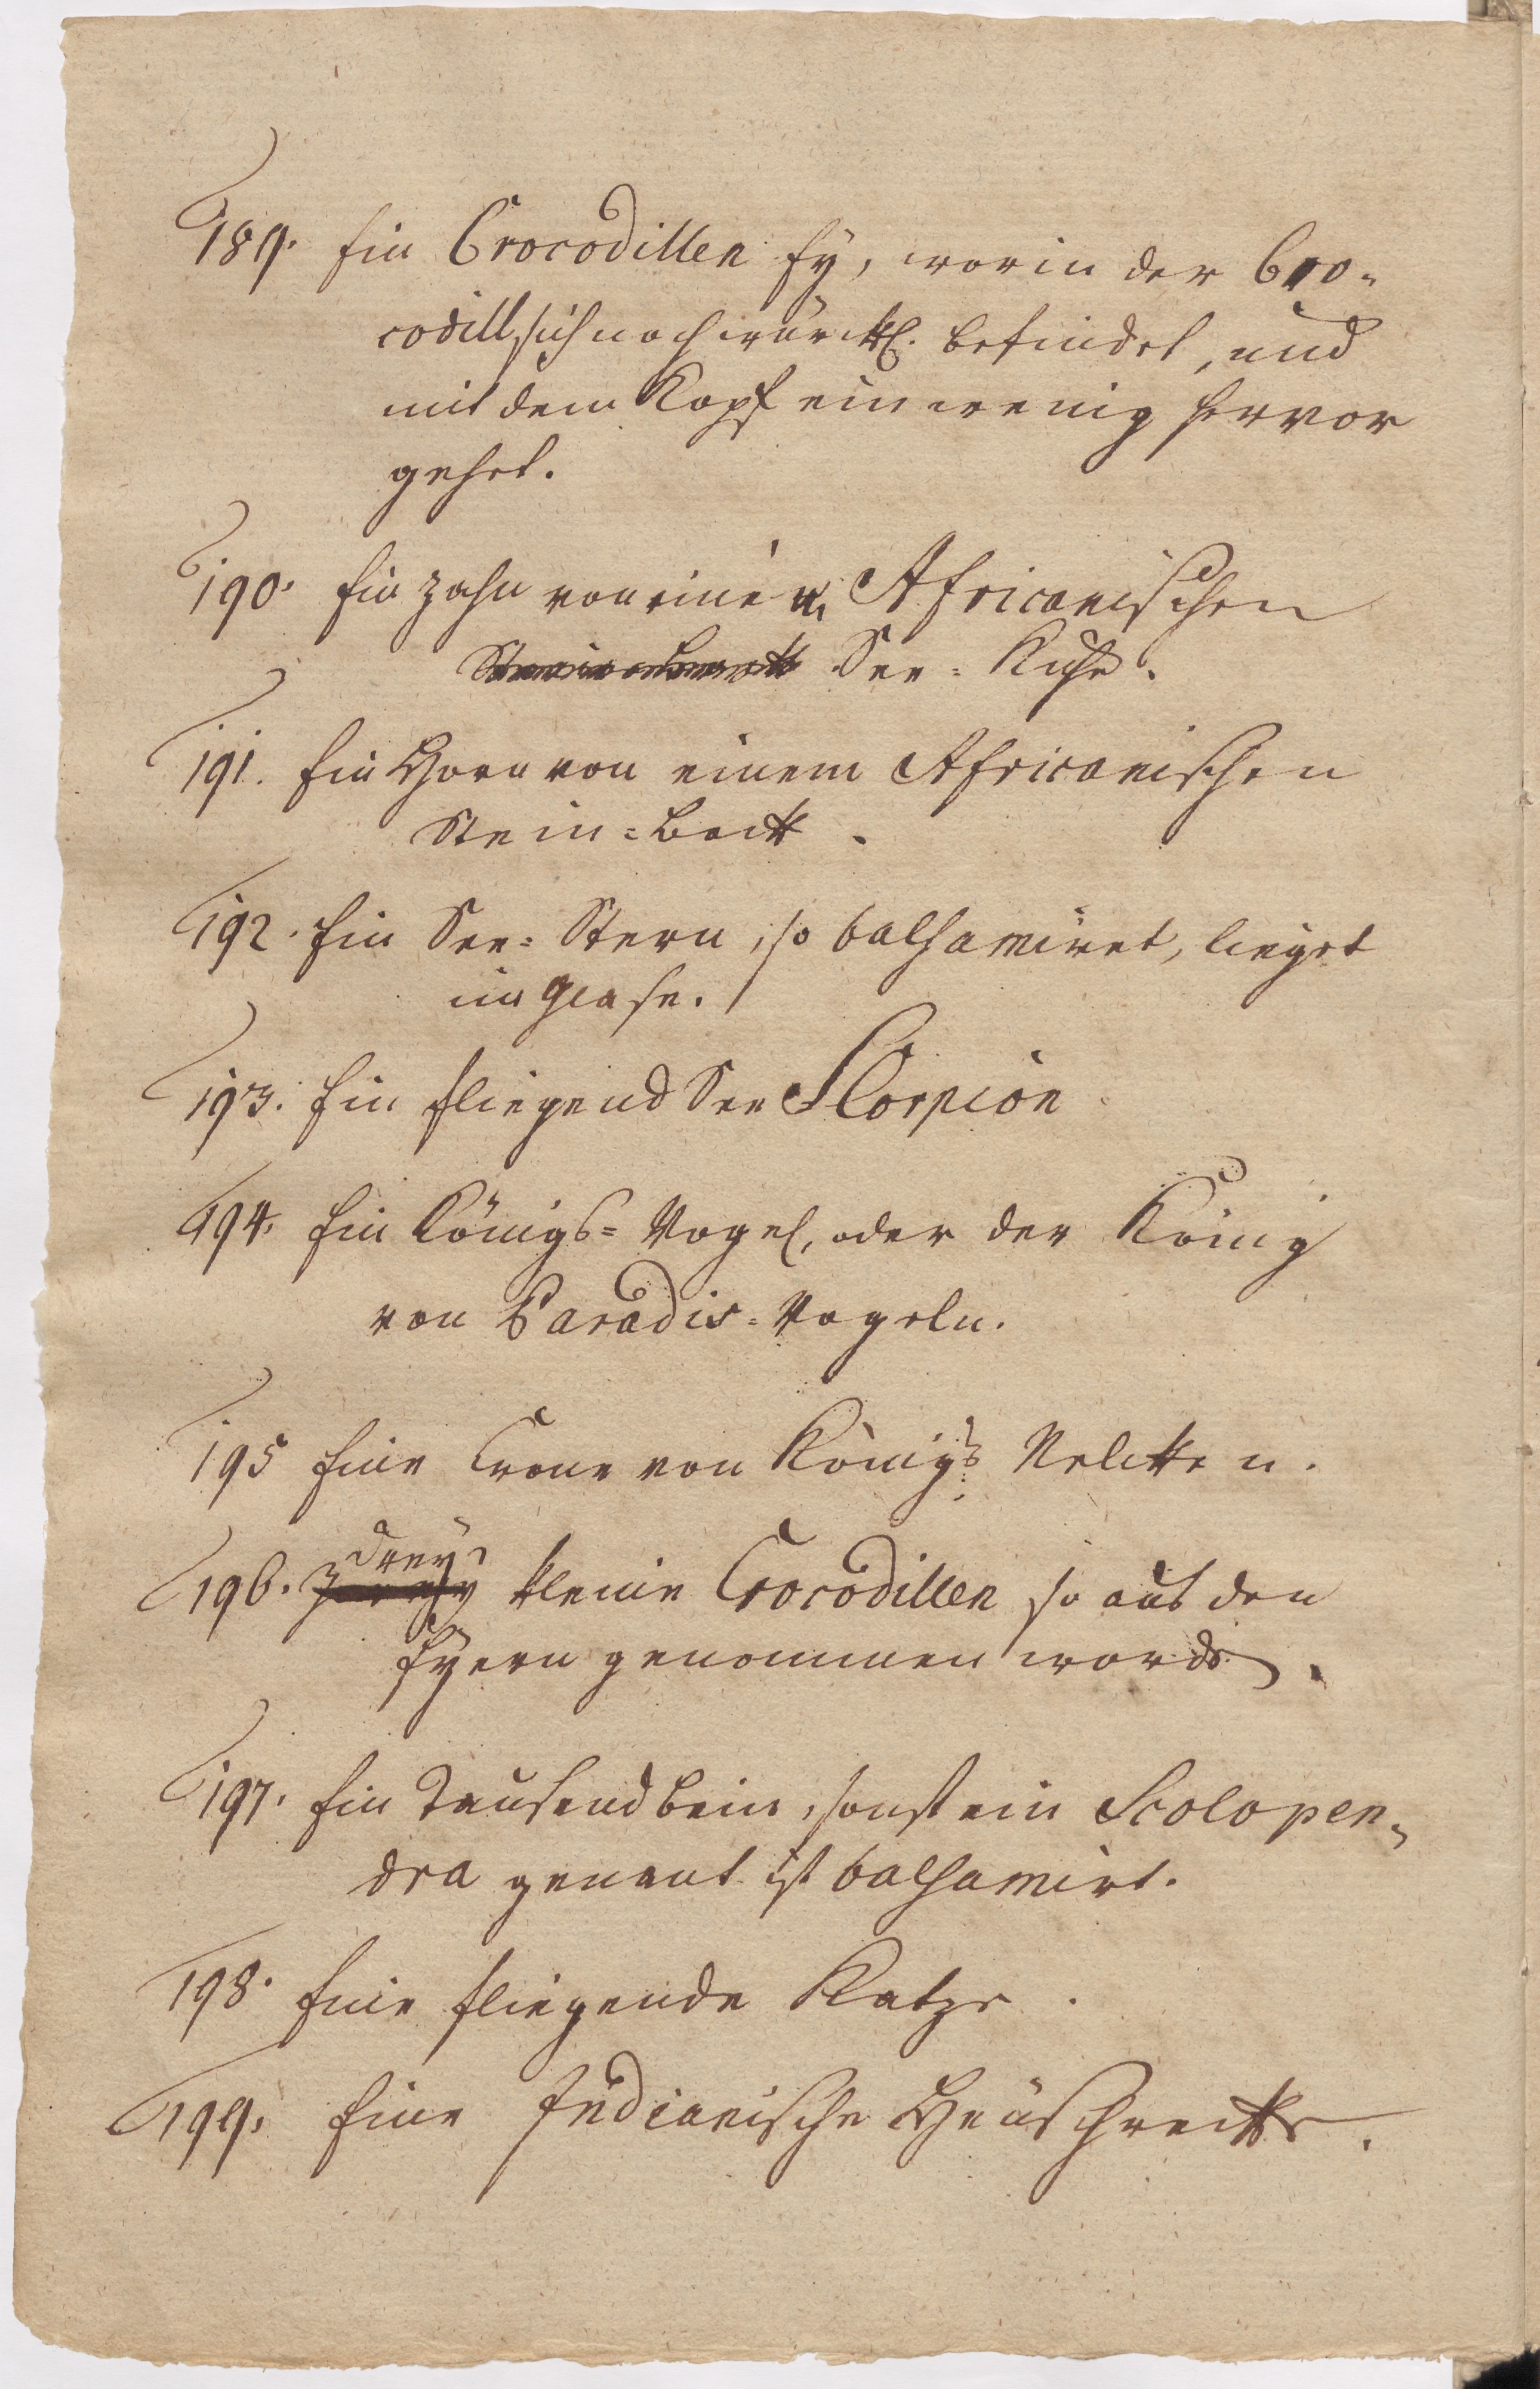 189. Ein Crocodillen Ey, worin der Cro-
codill sich noch würckl. befindet, und
mit dem Kopf ein wenig hervor
gehet.
190. Ein Zahn von einem Africanischen
See-Kuhe.
191. Ein Horn von einem Africanischen
Stein-bock.
192. Ein See-Stern, so balsamiret, lieget
im Glase.
193. Ein fliegend See Scorpion
194. Ein Königs-Vogel, oder der König
von Paradis-Vogeln.
195 Eine Crone von Königs Nelcken.
drey
196. Zwey kleine Crocodillen so aus den
Eyern genommen word.
197. Ein Tausendbein, sonst ein Scolopen-
dra genant ist balsamirt.
198. Eine fliegende Katze.
199. Eine Indianische Heuschrecke.